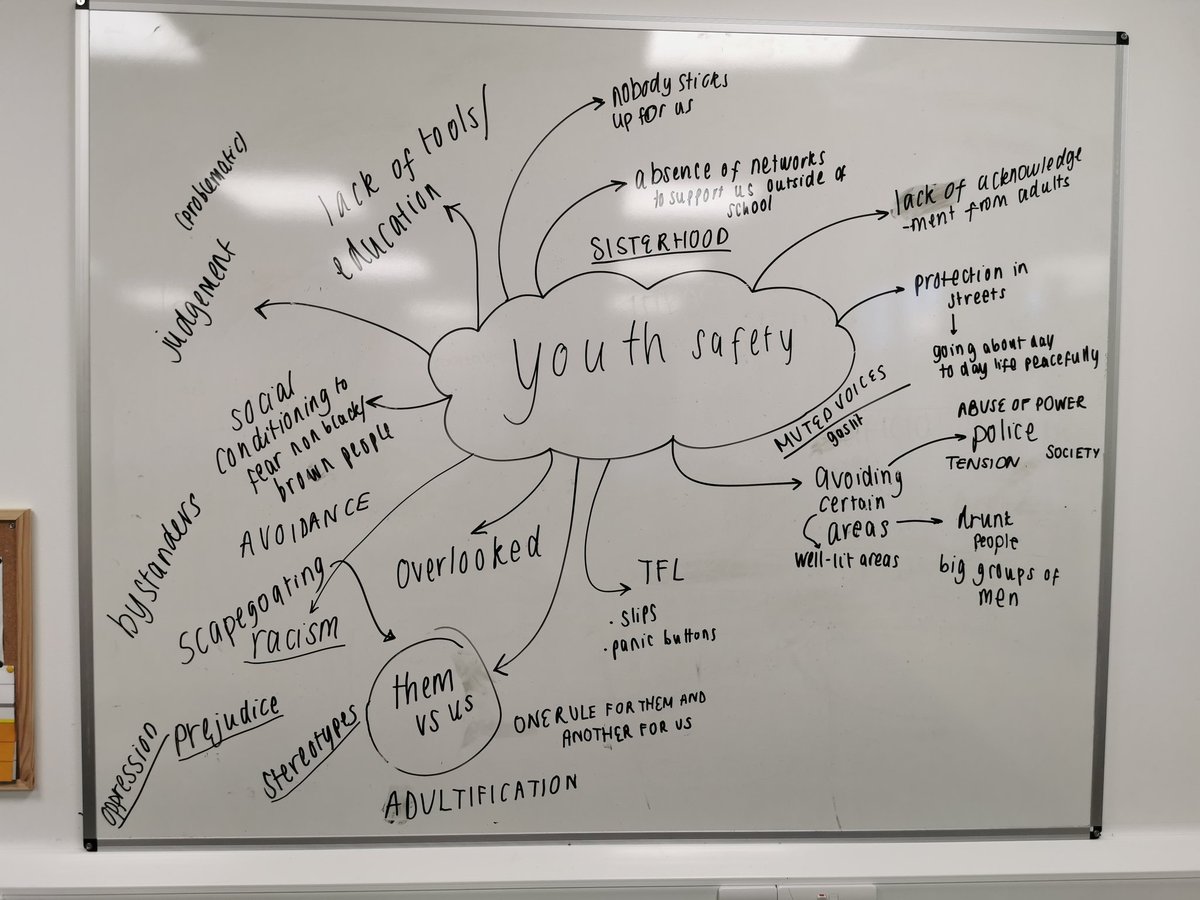 nobody sticks
up for us
lack of tools/
education
(problematic)
judgement
absence of networks
to support us outside of
school
SISTERHOOD
lack of acknowledge
-ment from adults
protection in
streets
going about day
to day life peacefully
youth safety
MUTED VOICES
gaslit
ABUSE OF POWER
police
TENSION
SOCIETY
avoiding
certain
areas
well-lit areas
drunk
people
big groups of
men
social
conditioning to
fear non black/
brown people
AVOIDANCE
bystanders
scapegoating
racism
overlooked
TFL
• slips
• panic buttons
them
vs us
ONE RULE FOR THEM AND
ANOTHER FOR US
stereotypes
prejudice
oppression
ADULTIFICATION